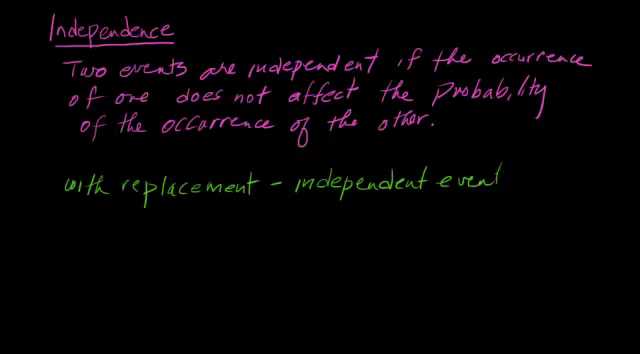 Independence
Two events are independent if the occurrence
of one does not affect the probability
of the occurrence of the other.
with replacement - independent event